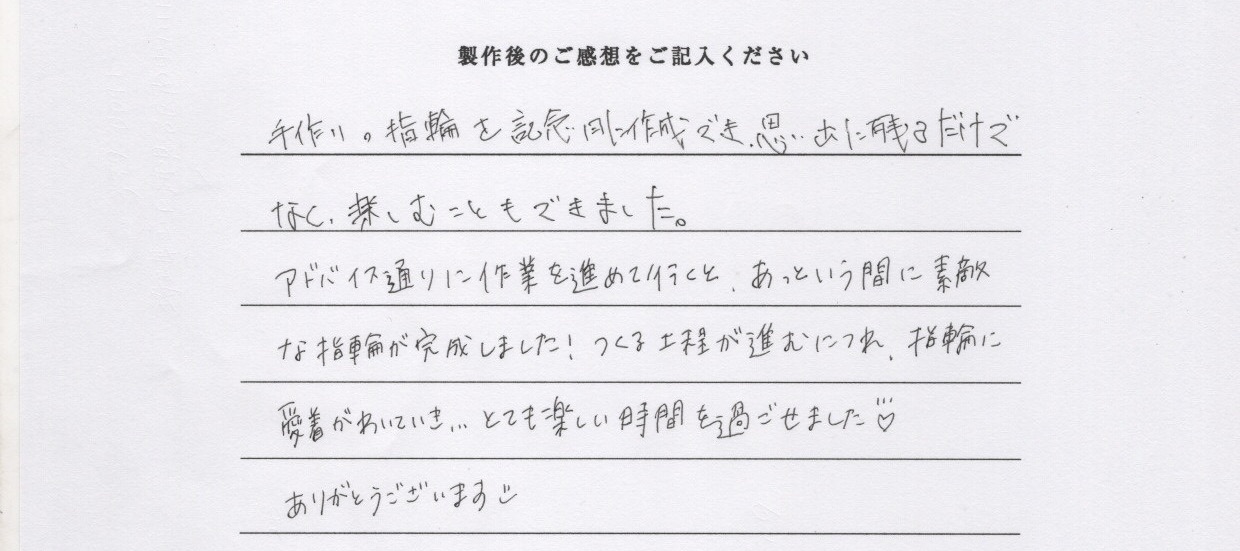 製作後のご感想をご記入ください
手作りの指輪を記念日に作成でき、思い出に残るだけで
なく、楽しむこともできました。
アドバイス通りに作業を進めて行くと、あっという間に素敵
な指輪が完成しました!つくる工程が進むにつれ、指輪に
愛着がわいていき...とても楽しい時間を過ごせました♡
ありがとうございます